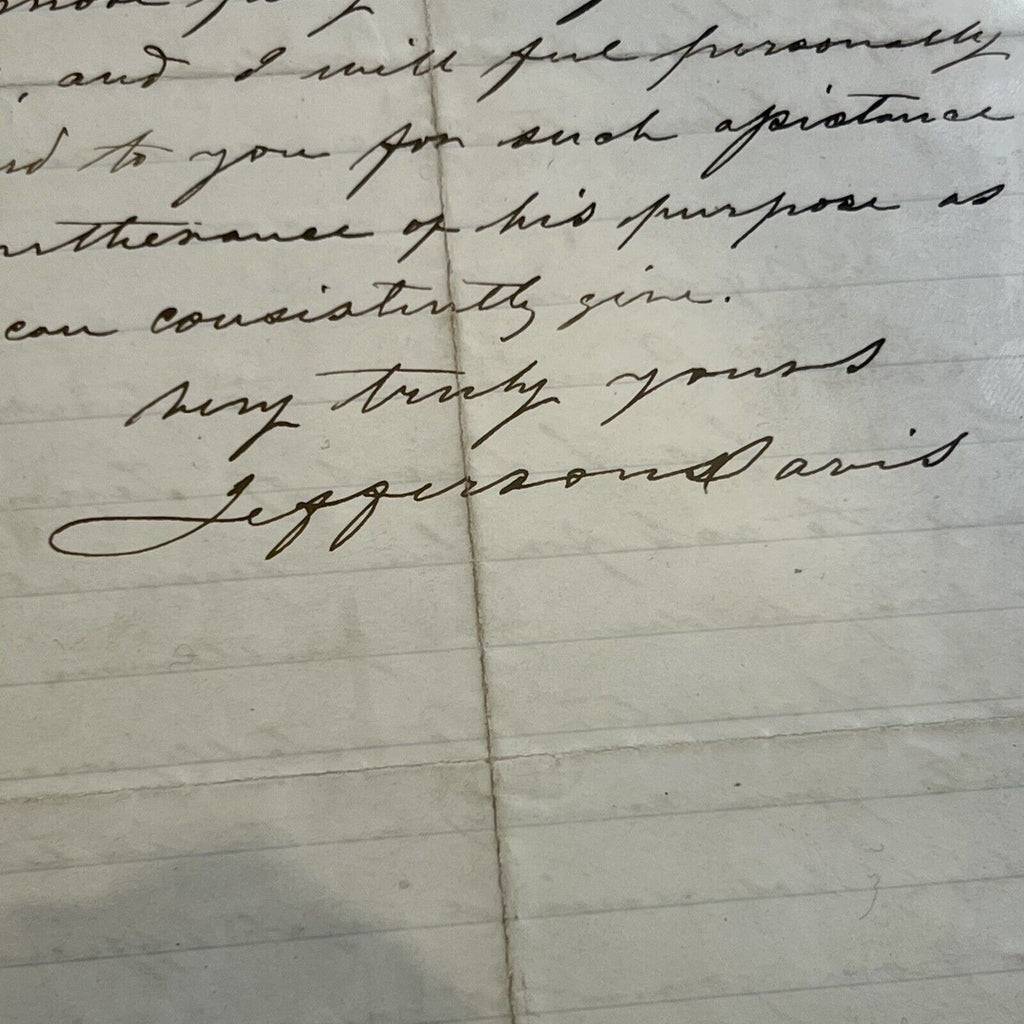 , and I will feel personally
to you for such assistance
furtherance of his purpose as
can consistently give.
Very truly yours
Jefferson Davis